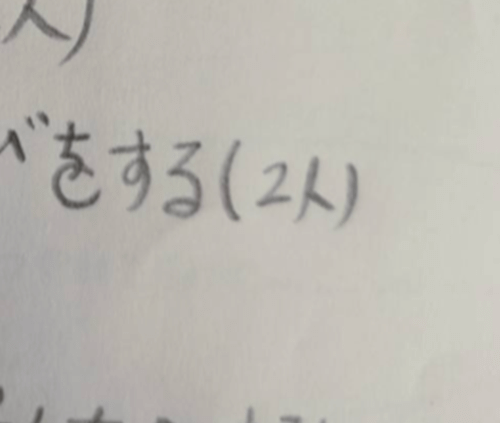 人)
べをする(2人)